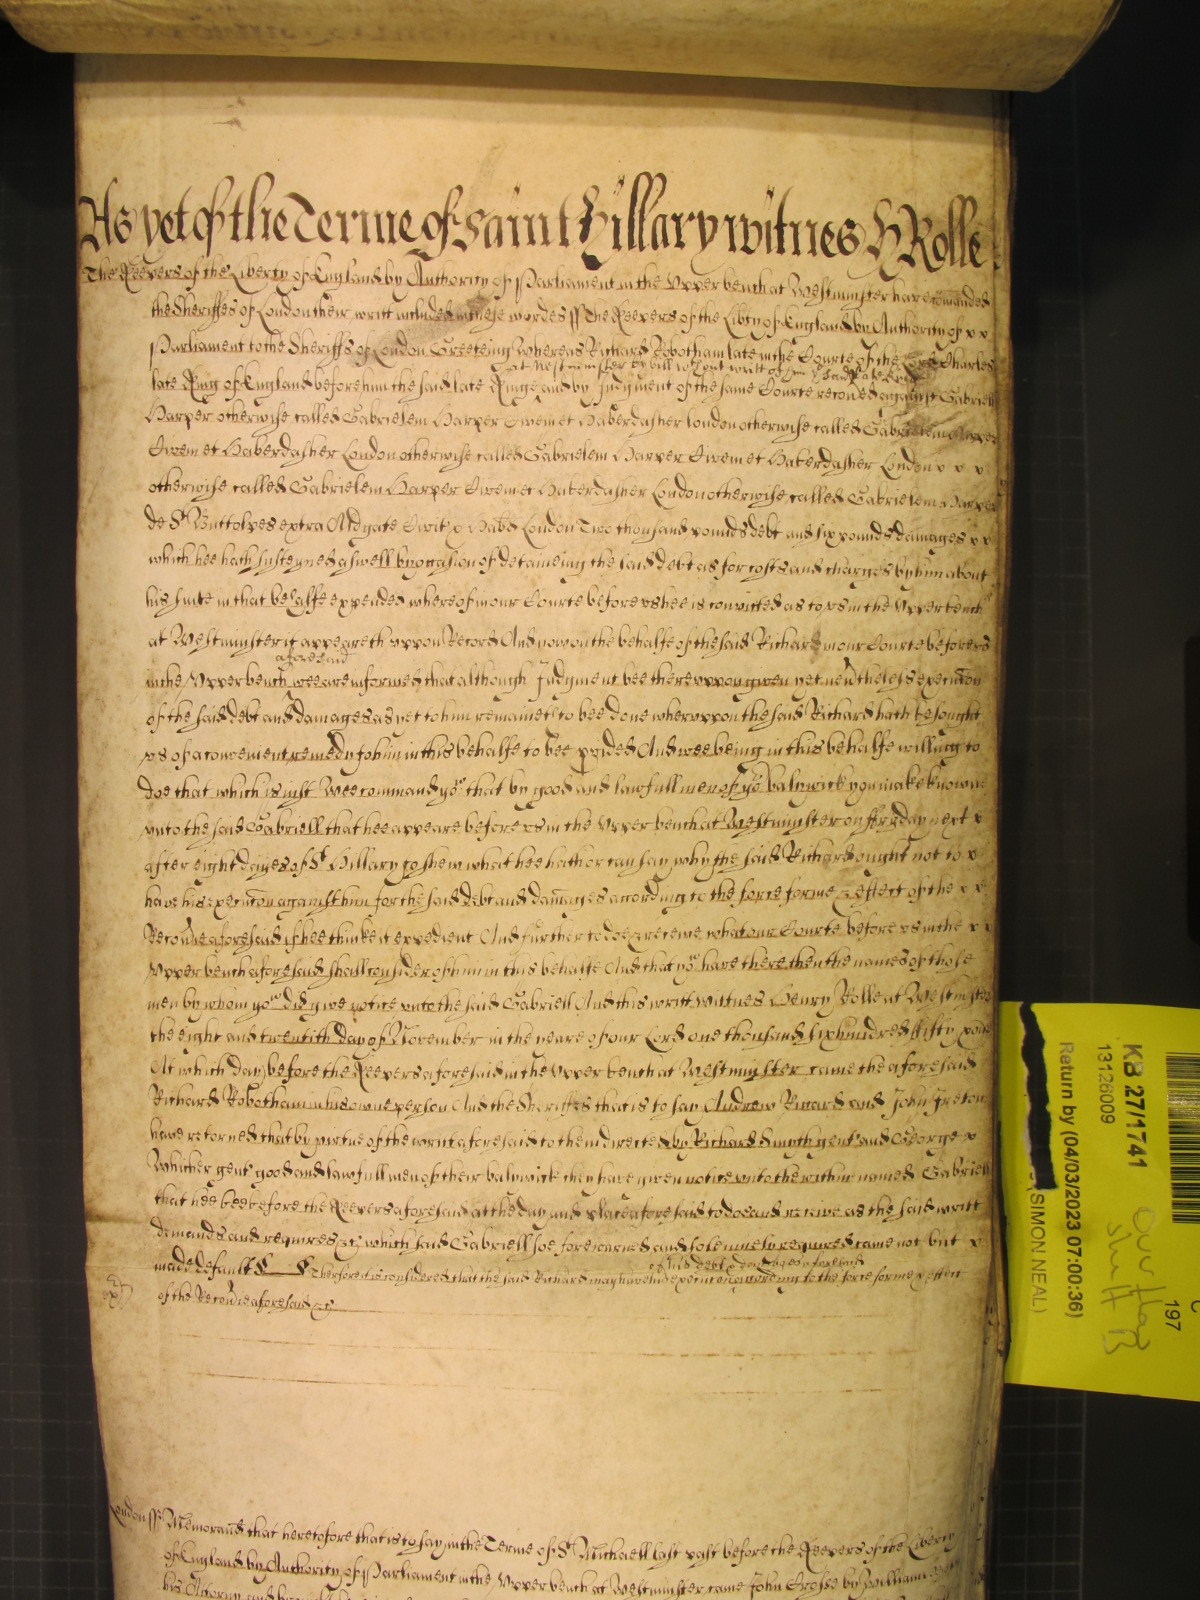 As yet of the Terme of Saint Hillary witnes H Rolle
The Keepers of the Liberty of England by Authority of Parliament in the Upper bench at Westminster have comanded
the Sheriffes of London their writt included in these wordes ss The Keepers of the Libty of England by Authority of x x
Parliament to the Sheriffs of London Greeteing Whereas Richard Robotham late in the Courte of the Lord Charles
at Westminster by bill without writt of him the said late King
late King of England before him the said late Kinge and by Judgment of the same Courte recovred against Gabriell
Harper otherwise called Gabrielem Harper Civem et Haberdasher London otherwise called Gabrielem Harper
Civem et Haberdasher London otherwise called Gabrielem Harper Civem et Haberdasher London x x x
otherwise called Gabrielem Harper Civem et Haberdasher London otherwise called Gabrielem Harper
de St Buttolpes extra Aldgate Civit x Habd London Two thousand pounds debt and six pounds damages x x
which hee hath susteyned aswell by occasion of detaineing the said debt as for costs and charges by him about
his suite in that behalfe expended whereof in our Courte before us hee is convicted as to us in the Upper bench
at Westminster it appeareth uppon Record And now on the behalfe of the said Richard in our Courte before us
aforesaid
in the Upper bench wee are informed that although Judgment bee thereuppon given yet nevthelesse execution
of the said debt and damages as yet to him remaineth to bee done whereuppon the said Richard hath besought
us of a convenient remedy for him in this behalfe to bee pvided And wee being in this behalfe willing to
doe that which is iust Wee command yow that by good and lawfull men of yor Balywick you make knowne
unto the said Gabriell that hee appeare before us in the Upper bench at Westminster on ffryday next x
after eight dayes of St Hillary to shew what hee hath or can say why the said Richard ought not to x
have his execution against him for the said debt and damages according to the force forme & effect of the x x
Recovrie aforesaid if hee thinke it expedient And further to doe & receive what our Courte before us in the x x
Upper bench aforesaid shall consider of him in this behalfe And that yow have there then the names of those
men by whom yow did give notice unto the said Gabriell And this writt Wittnes Henry Rolle at Westminster
the eight and twentith day of November in the yeare of our Lord one thousand six hundred & fifty
At which day before the Keepers aforesaid in the Upper bench at Westminster came the aforesaid
Richard Robotham in his owne person And the Sheriffes that is to say Andrew Riccard and John Ireton
have retorned that by virtue of the writt aforesaid to them directed by Richard Smyth gent and George x
Whicher gent good and lawfull men of their balywick they have given notice unto the within named Gabriell
that hee bee before the Keepers aforesaid at the day and place aforesaid to doe and receive as the said writt
demands and requires &c which said Gabriell soe forewarned and solemnely required came not but x
of his debt & damages aforesaid
made default Therefore it is considered that the said Richard may have his execution according to the force forme & effect
of the Recovrie aforesaid &c
London ss Memorand that heretofore that is to say in the Terme of St Michaell last past before the Keepers of the Liberty
of England by Authority of Parliament in the Upper bench at Westminster came John Crosse by William
his Attorny and
KB 27/1741
13126009
Return by (04/03/2023 07:00:36)
(SIMON NEAL)
C
197